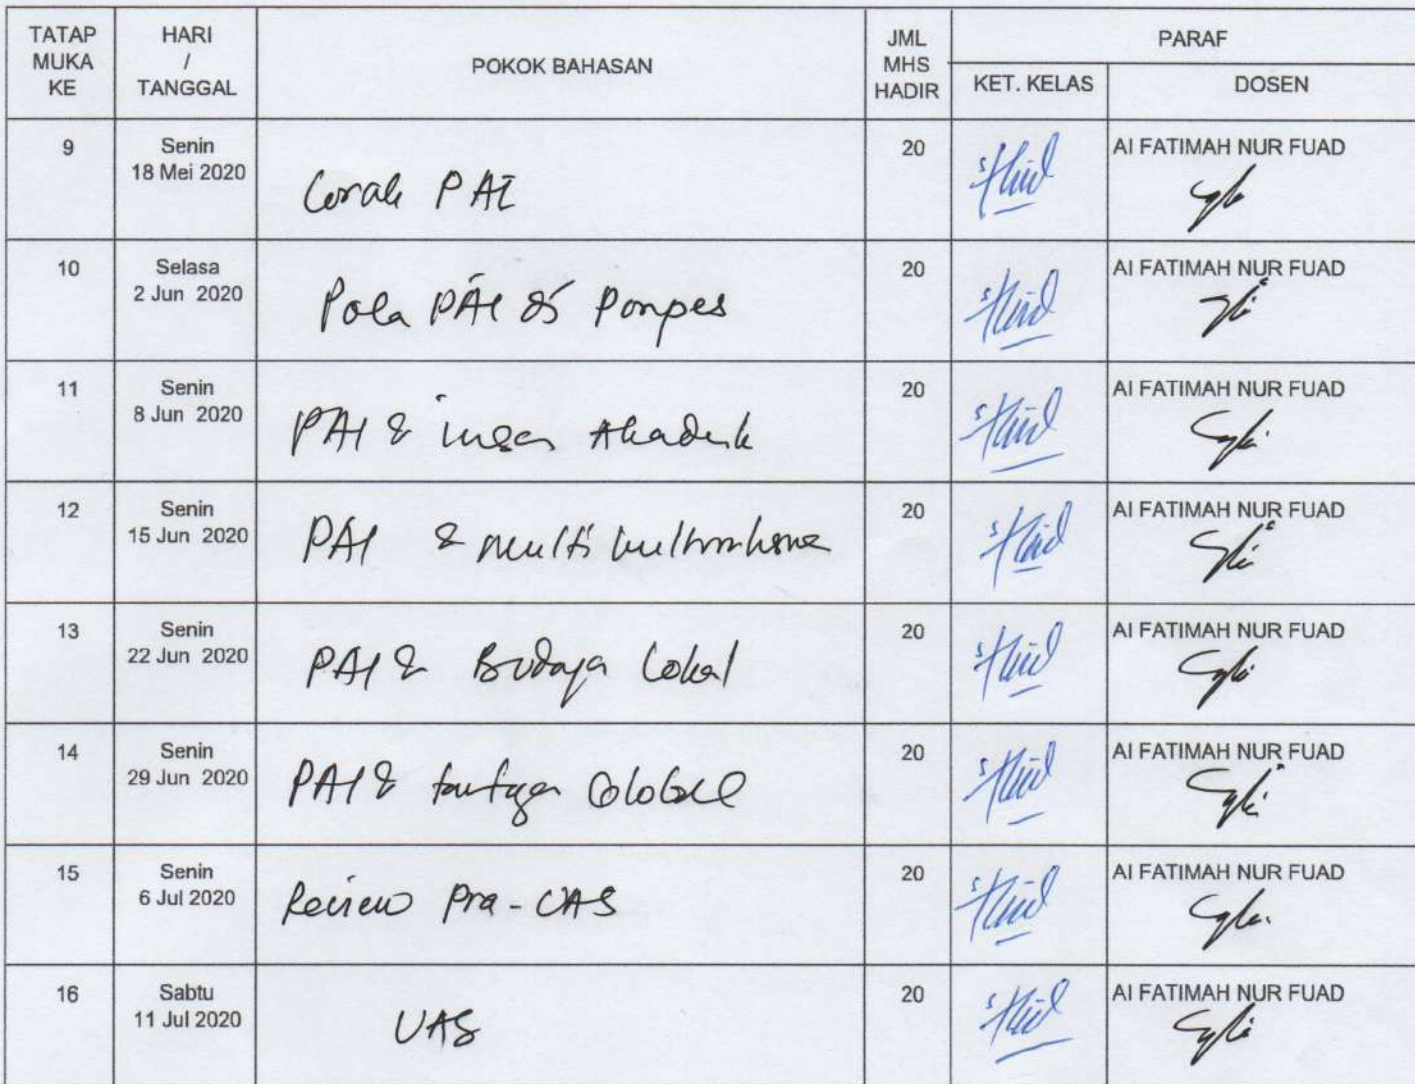 TATAP MUKA KE
HARI / TANGGAL
POKOK BAHASAN
JML MHS HADIR
PARAF
KET. KELAS
DOSEN
9
Senin
18 Mei 2020
Corak PAI
20
AI FATIMAH NUR FUAD
10
Selasa
2 Jun 2020
Pola PAI di Ponpes
20
AI FATIMAH NUR FUAD
11
Senin
8 Jun 2020
PAI & insan Akademik
20
AI FATIMAH NUR FUAD
12
Senin
15 Jun 2020
PAI & multikulturalisme
20
AI FATIMAH NUR FUAD
13
Senin
22 Jun 2020
PAI & Budaya Lokal
20
AI FATIMAH NUR FUAD
14
Senin
29 Jun 2020
PAI & tantangan Global
20
AI FATIMAH NUR FUAD
15
Senin
6 Jul 2020
Review Pra-UAS
20
AI FATIMAH NUR FUAD
16
Sabtu
11 Jul 2020
UAS
20
AI FATIMAH NUR FUAD